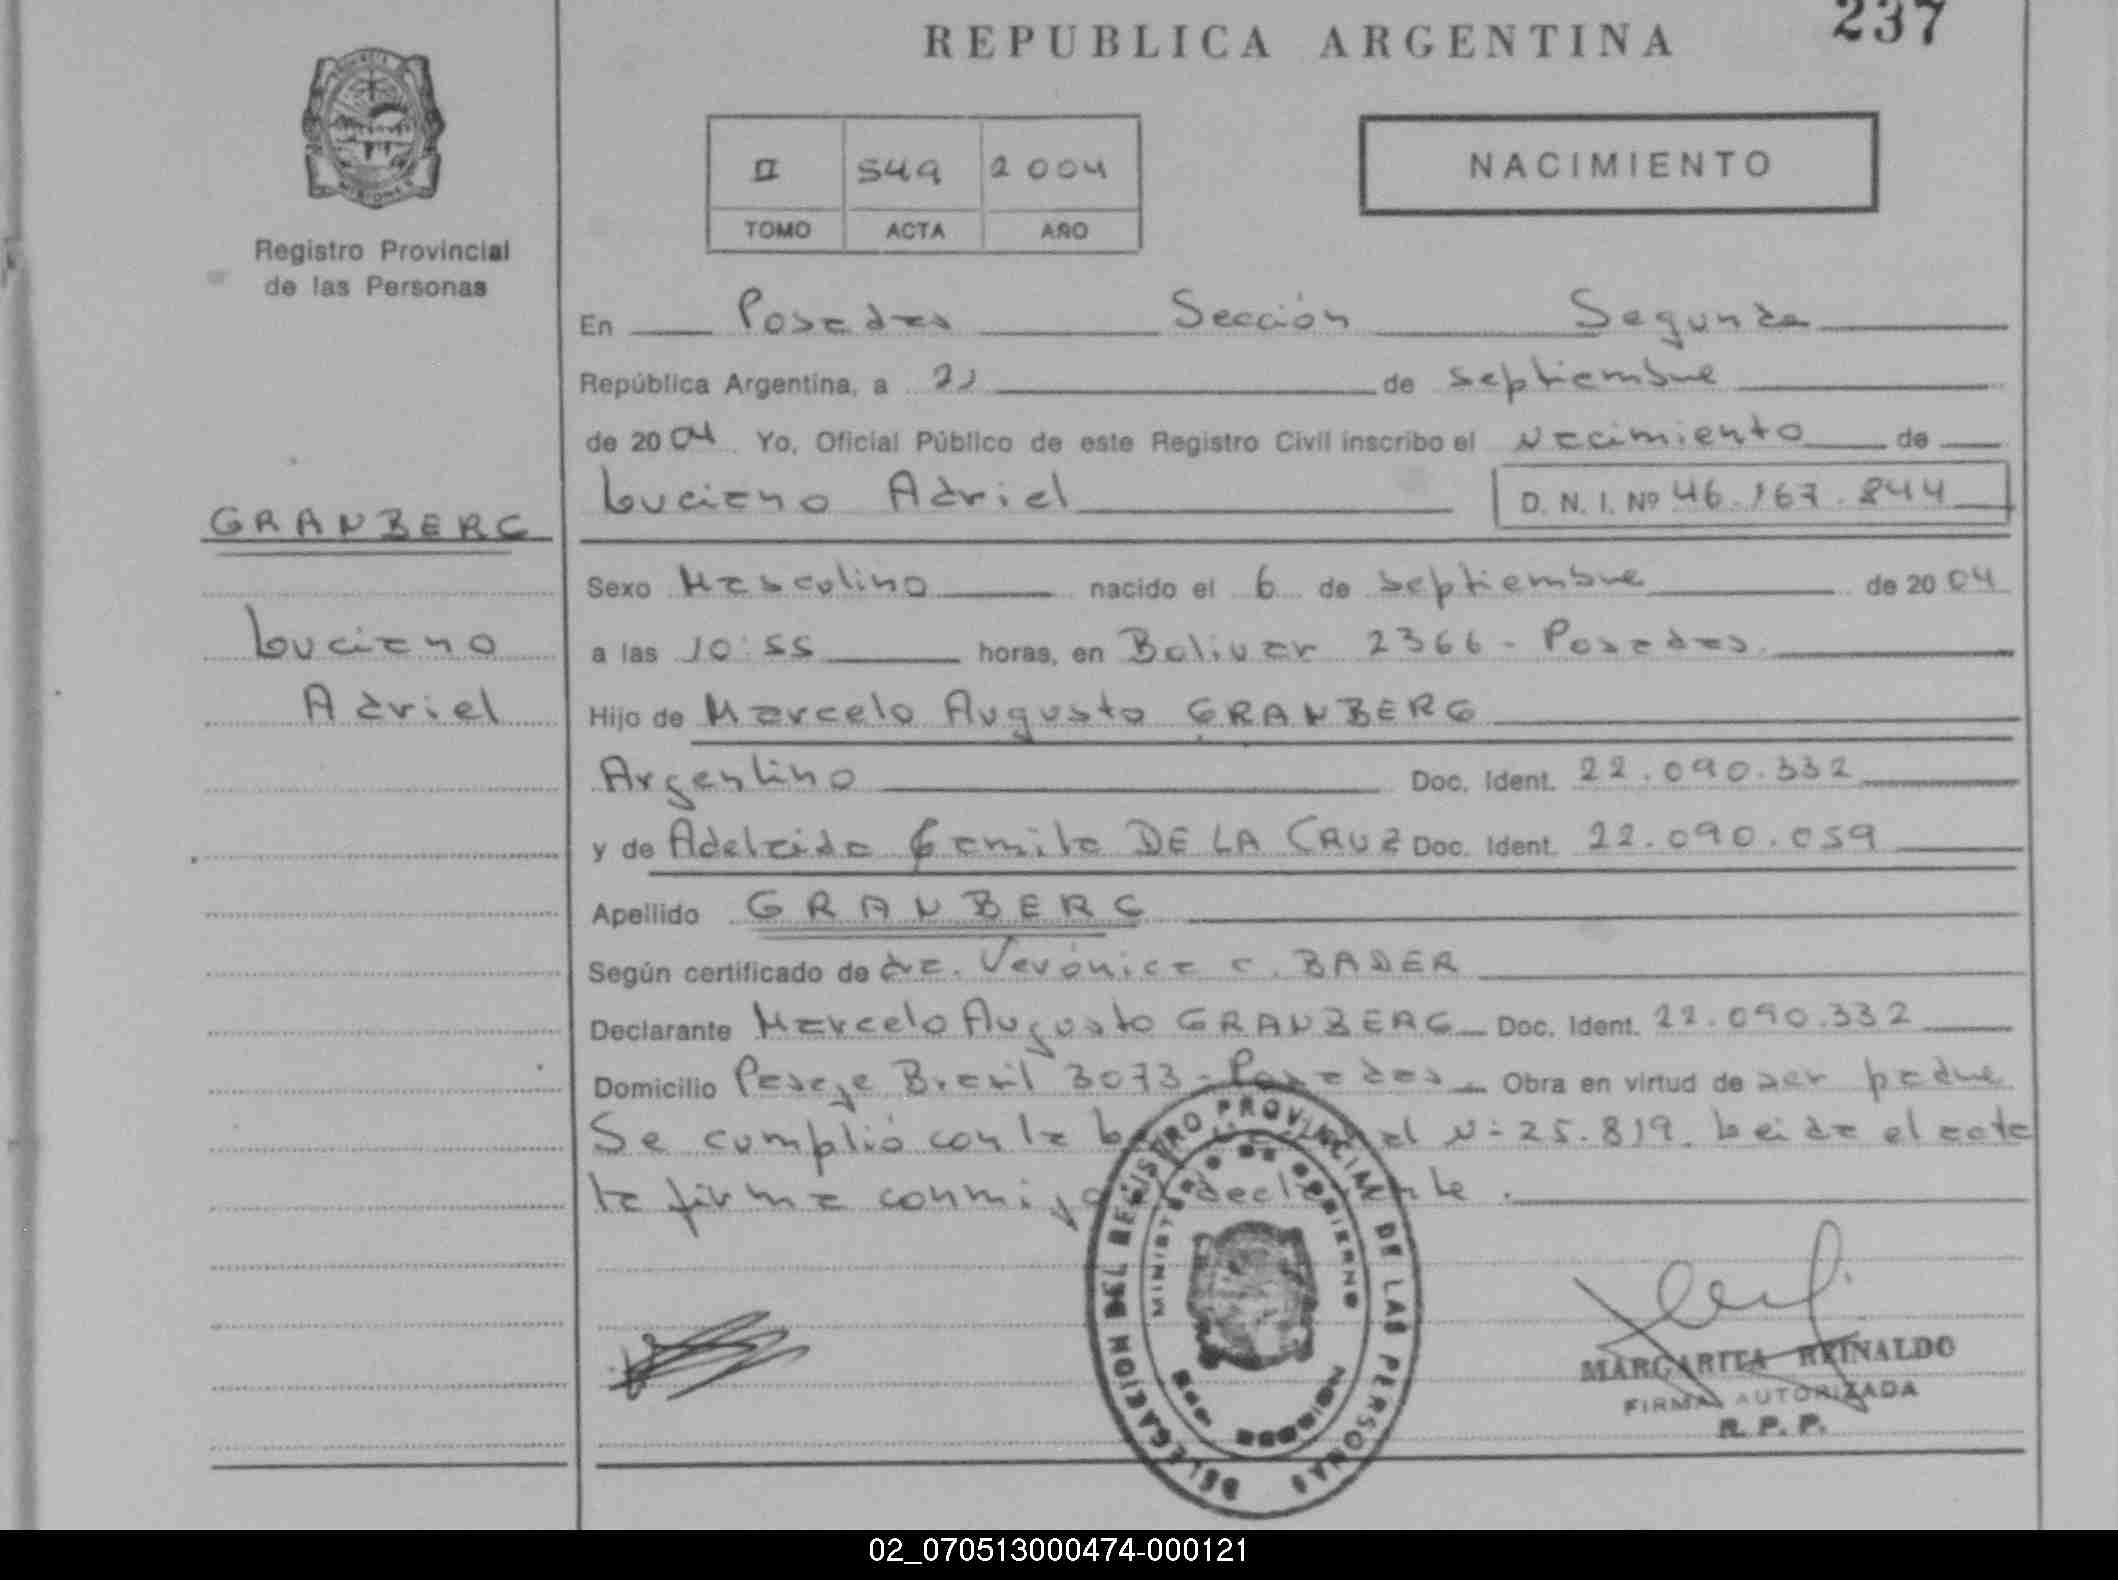 REPUBLICA ARGENTINA
237
II 549 2004
TOMO ACTA AÑO
NACIMIENTO
Registro Provincial
de las Personas
En Posadas Sección Segunda
República Argentina, a de septiembre
de 2004 Yo, Oficial Público de este Registro Civil inscribo el Nacimiento de
Luciano Adriel D. N. I. Nº 46.167.844
GRANBERG
Luciano
Adriel
Sexo Masculino nacido el 6 de septiembre de 2004
a las 10:55 horas, en Bolivar 2366 - Posadas.
Hijo de Marcelo Augusto GRANBERG
Argentino Doc. Ident. 22.090.332
y de Adelaida Camila DE LA CRUZ Doc. Ident. 22.090.059
Apellido GRANBERG
Según certificado de dra. Verónica C. BADER
Declarante Marcelo Augusto GRANBERG Doc. Ident. 22.090.332
Domicilio Pasaje Brasil 3073 - Posadas Obra en virtud de ser padre
Se cumplió con la Nº 25.819. Leida el acta
la firma conmigo declarante.
DELEGACION DEL REGISTRO PROVINCIAL DE LAS PERSONAS
MINISTERIO DE GOBIERNO
MARGARITA REINALDO
FIRMA AUTORIZADA
R. P. P.
02_070513000474-000121